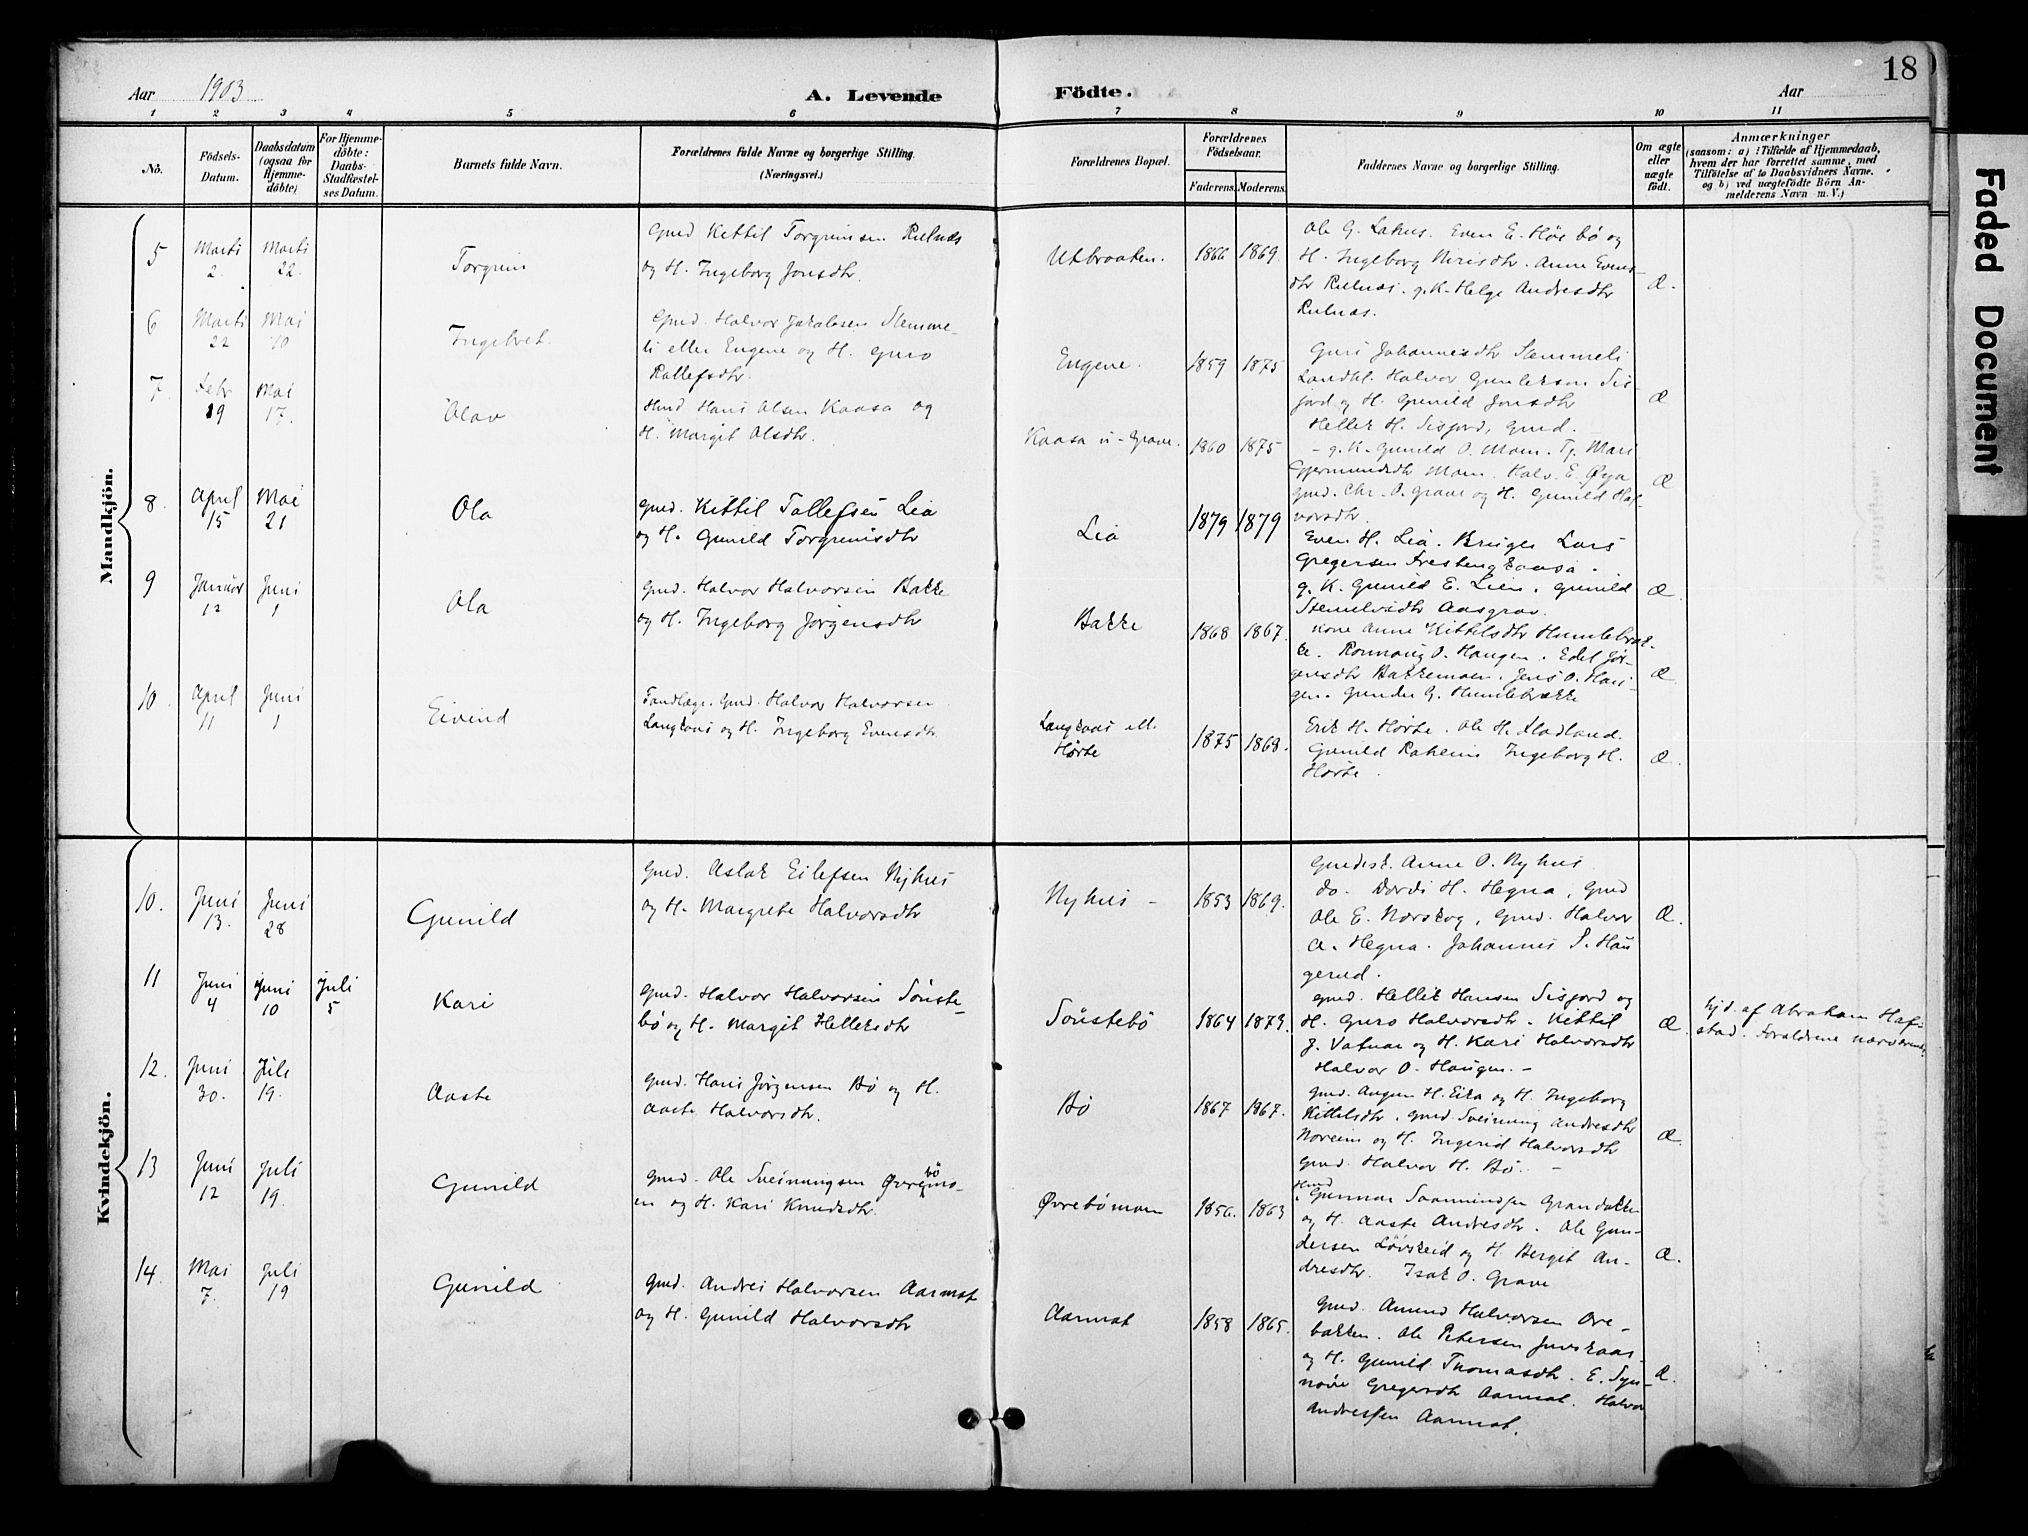 18
Aar 1903
A. Levende Födte.
Aar
1 2 3 4 5 6 7 8 9 10 11
No.
Födsels-Datum.
Daabsdatum (ogsaa for Hjemme-döbte)
For Hjemme-döbte: Daabs-Stadfæstel-ses Datum.
Barnets fulde Navn.
Forældrenes fulde Navne og borgerlige Stilling. (Næringsvei.)
Forældrenes Bopæl.
Forældrenes Födselsaar.
Faderens. Moderens.
Faddernes Navne og borgerlige Stilling.
Om ægte eller uægte födt.
Anmærkninger
(saasom: a) i Tilfælde af Hjemmedaab,
hvem der har forrettet samme, med
Tilföielse af to Daabsvidners Navne.
og b) ved uægtefödte Börn An-
melderens Navn m. V.)
Faded Document
Mandkjön.
5 Marti 2. Marti 22. Torgrim
Gmd Kittil Torgrimsen Rulnæs
og H. Ingeborg Jonsdtr.
Utbraaten. 1866 1869.
Ole G. Even E. Høi bø og
H. Ingeborg Anne Evens-
dtr Rulnæs. g. K. Helge Andresdtr
Rulnæs.
Æ.
6 Marti 22 Mai 10 Ingebret.
Gmd. Halvor Jakobsen Slemme-
li eller Engene og H. Guro
Rollefsdtr.
Engene. 1859 1875
Guri Johannesdtr Slemmeli
Landhl. Halvor Gunleksen Sis-
jord og H. Gunild Jonsdtr
Hellek H. Sisjord, Gmd.
Æ
7. Febr 19 Mai 17. Olav
Hmd Hans Olsen Kaasa og
H. Margit Olsdtr.
Kaasa u. Grave. 1860 1875
g. K. Gunild O. Moen. Tj. Mari
Gjermundsdtr Moen. Halv. E. Øya
gmd. Chr. O. Grave og H. Gunild Hal-
vorsdtr.
Æ
8. April 15 Mai 21 Ola
Gmd. Kittil Tollefsen Lia
og H. Gunild Torgrimsdtr
Lia 1879 1879
Even H. Lia. Bruger Lars
Gregersen
g. K. Gunild E. Lien. Gunild
Aasgrav.
Æ.
9 Januar 12 Juni 1 Ola
Gmd. Halvor Halvorsen Bakke
og H. Ingeborg Jørgensdtr
Bakke 1868 1867.
Kone Anne Kittelsdtr Humlebræk-
ke. Ronnaug O. Haugen. Edel Jør-
gensdtr Bakkemoen. Jens O. Hau-
gen. Gunder G. Humlebrække
Æ.
10. April 11 Juni 1 Eivind
Tandlæge. Gmd. Halvor Halvorsen
Langkaas og H. Ingeborg Evensdtr.
Langkaas ell. Hørte 1875 1868.
Erik H. Hørte. Ole H. Fladland.
Gunild Ingeborg H.
Hørte.
Æ.
Kvindekjön.
10. Juni 13. Juni 28 Gunild
Gmd. Aslak Eilefsen Nyhus
og H. Margrete Halvorsdtr
Nyhus - 1853 1869.
Anne O. Nyhus.
do. Dordi H. Hegna, Gmd
Ole E. Norskog, Gmd. Halvor
A. Hegna. Johannes S. Hau
gerud.
Æ.
11 Juni 4 Juni 10 Juli 5 Kari
Gmd. Halvor Halvorsen Sønste-
bø og H. Margit Helleksdtr
Sønstebø 1864 1873.
Gmd. Hellik Hansen Sisjord og
H. Guro Halvorsdtr. Kittil
J. Vatnar og H. Kari Halvorsdtr
Halvor O. Haugen. -
Æ.
Hjd. af Abraham Haf-
stad. Forældrene nærværende.
12. Juni 30. Juli 19. Aaste
Gmd. Hans Jørgensen Bø og H.
Aaste Halvorsdtr.
Bø 1867 1867.
Gmd. Augun H. Eika og H. Ingeborg
Kittelsdtr. Gmd. Sveinung Andresdtr
Noreim og H. Ingerid Halvorsdtr
Gmd. Halvor H. Bø. -
Æ.
13 Juni 12 Juli 19. Gunild
Gmd. Ole Sveinungsen Øvrebømo-
en og H. Kari Knudsdtr.
Øvrebømoen 1856. 1863
Hmd Gunnar Saamundsen Grandokken
og H. Aaste Andresdtr. Ole Gun-
dersen Løvskeid og H. Bergit An-
dresdtr. Isak O. Grave
Æ.
14. Mai 7. Juli 19 Gunild
Gmd. Andres Halvorsen Aarmot
og H. Gunild Halvorsdtr
Aarmot 1858 1865.
Gmd. Amund Halvorsen Ore-
bakken. Ole Petersen Juvskaas
og H. Gunild Thomasdtr. E. Syn-
nøve Gregersdtr Aarmot. Halvor
Andressen Aarmot.
Æ.